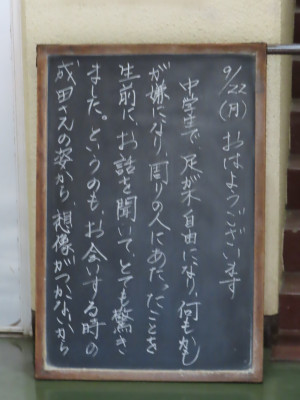 9/22(月)おはようございます
中学生で、足が不自由になり、何も愈し
が嫌になり、周りの人にあたったことを
生前に、お話を聞いて、とても驚き
ました。というのも、お会いする時の
成田さんの姿から、想像がつかないから